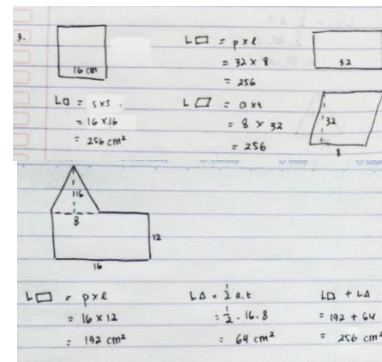 3.
16 cm
L□ = s x s
= 16 x 16
= 256 cm²
L▭ = p x l
= 32 x 8
= 256
32
L▱ = a x t
= 8 x 32
= 256
32
8
16
8
12
16
L▭ = p x l
= 16 x 12
= 192 cm²
L△ = 1/2 a.t
= 1/2 . 16 . 8
= 64 cm²
L▭ + L△
= 192 + 64
= 256 cm²